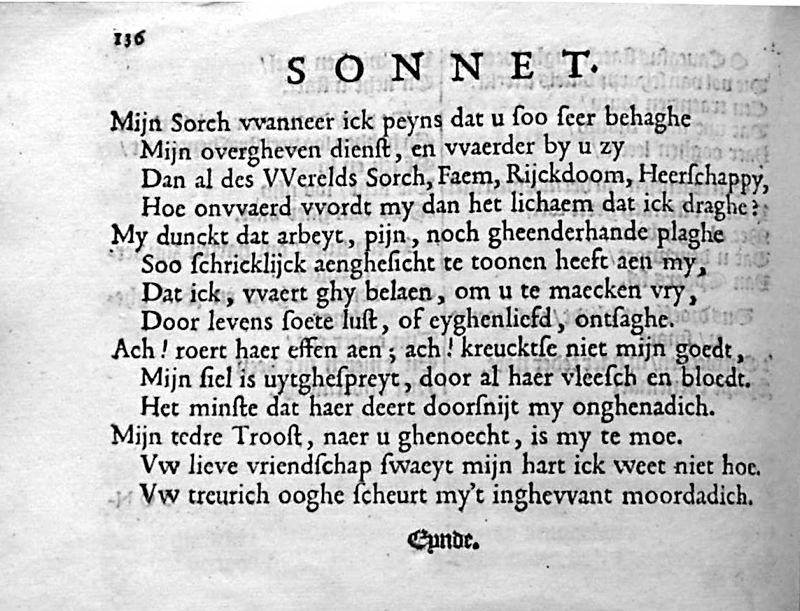 136
SONNET.
Mijn Sorch vvanneer ick peyns dat u soo seer behaghe
Mijn overgheven dienst, en vvaerder by u zy
Dan al des VVerelds Sorch, Faem, Rijckdoom, Heerschappy,
Hoe onvvaerd vvordt my dan het lichaem dat ick draghe?
My dunckt dat arbeyt, pijn, noch gheenderhande plaghe
Soo schricklijck aenghesicht te toonen heeft aen my,
Dat ick, vvaert ghy belaen, om u te maecken vry,
Door levens soete lust, of eyghenliefd, ontsaghe.
Ach! roert haer effen aen; ach! kreucktse niet mijn goedt,
Mijn siel is uytghespreyt, door al haer vleesch en bloedt.
Het minste dat haer deert doorsnijt my onghenadich.
Mijn tedre Troost, naer u ghenoecht, is my te moe.
Vw lieve vriendschap swaeyt mijn hart ick weet niet hoe.
Vw treurich ooghe scheurt my't inghevvant moordadich.
Eynde.